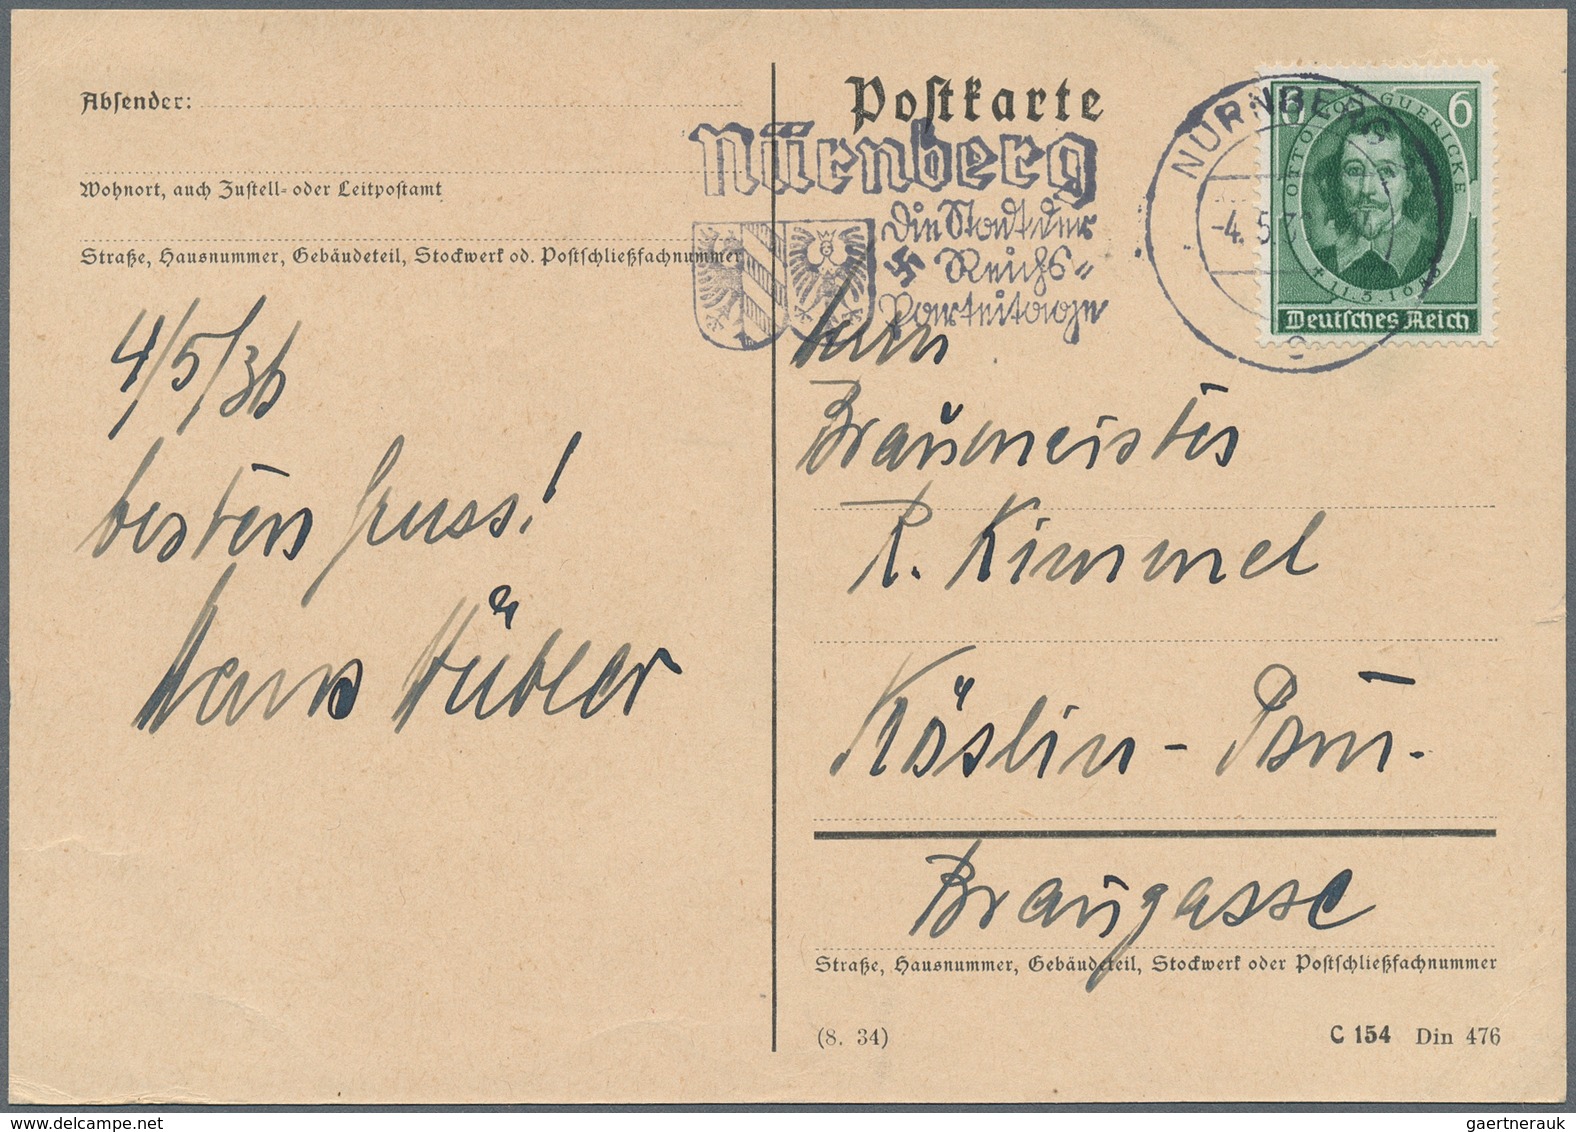 Absender:
Wohnort, auch Zustell- oder Leitpostamt
Straße, Hausnummer, Gebäudeteil, Stockwerk od. Postschließfachnummer
4/5/36
besten Gruss!
Hans Hübler
Postkarte
Nürnberg
Die Stadt der
Reichs-
Parteitage
NÜRNBERG
-4.5.36
6 6
OTTO VON GUERICKE
+ 11.5.1686
Deutsches Reich
Herrn
Braumeister
R. Kimmel
Köslin - Pom.
Braugasse
Straße, Hausnummer, Gebäudeteil, Stockwerk oder Postschließfachnummer
(8. 34)
C 154 Din 476
gaertnerauk